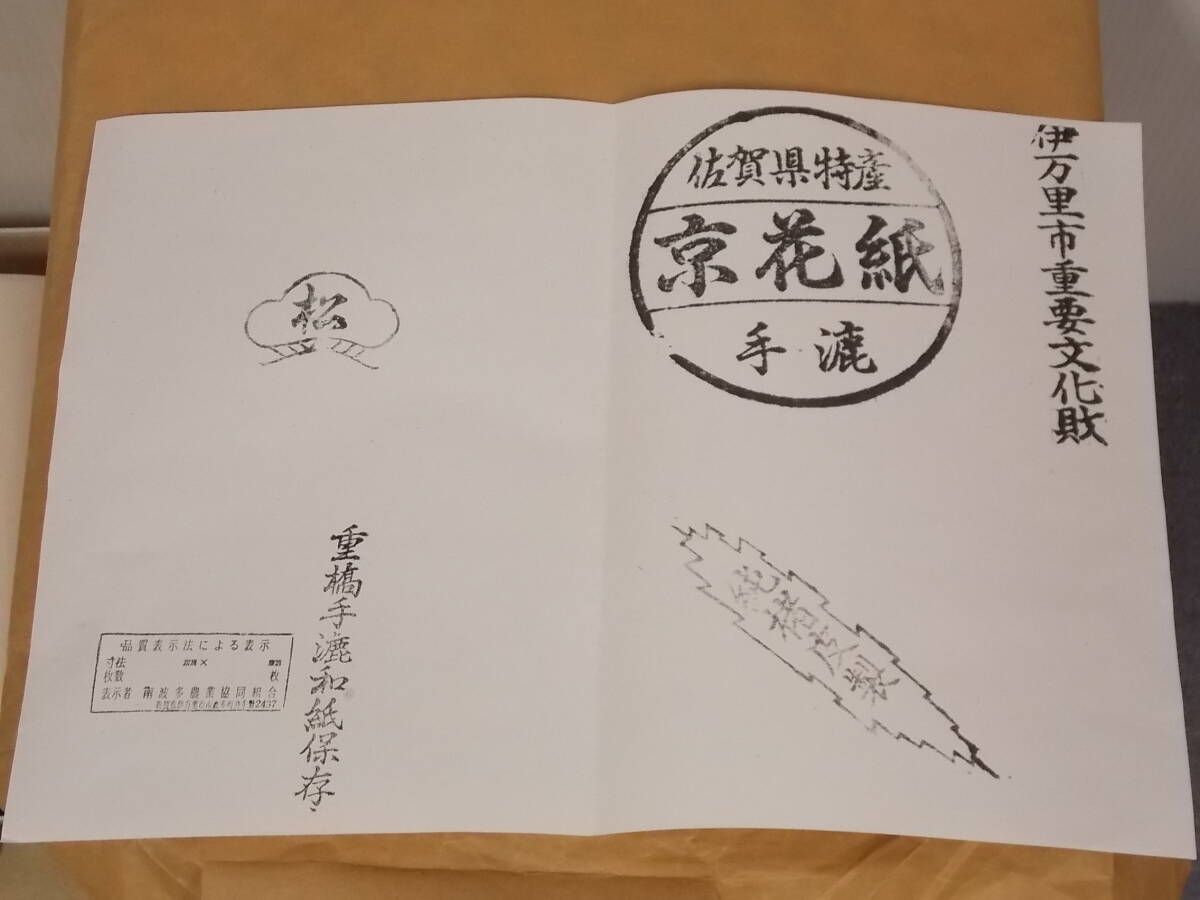 伊万里市重要文化財
佐賀県特産
京花紙
手漉
純楮皮製
松
重橋手漉和紙保存
品質表示法による表示
寸法 ×
枚数 枚
表示者 南波多農業協同組合
2437